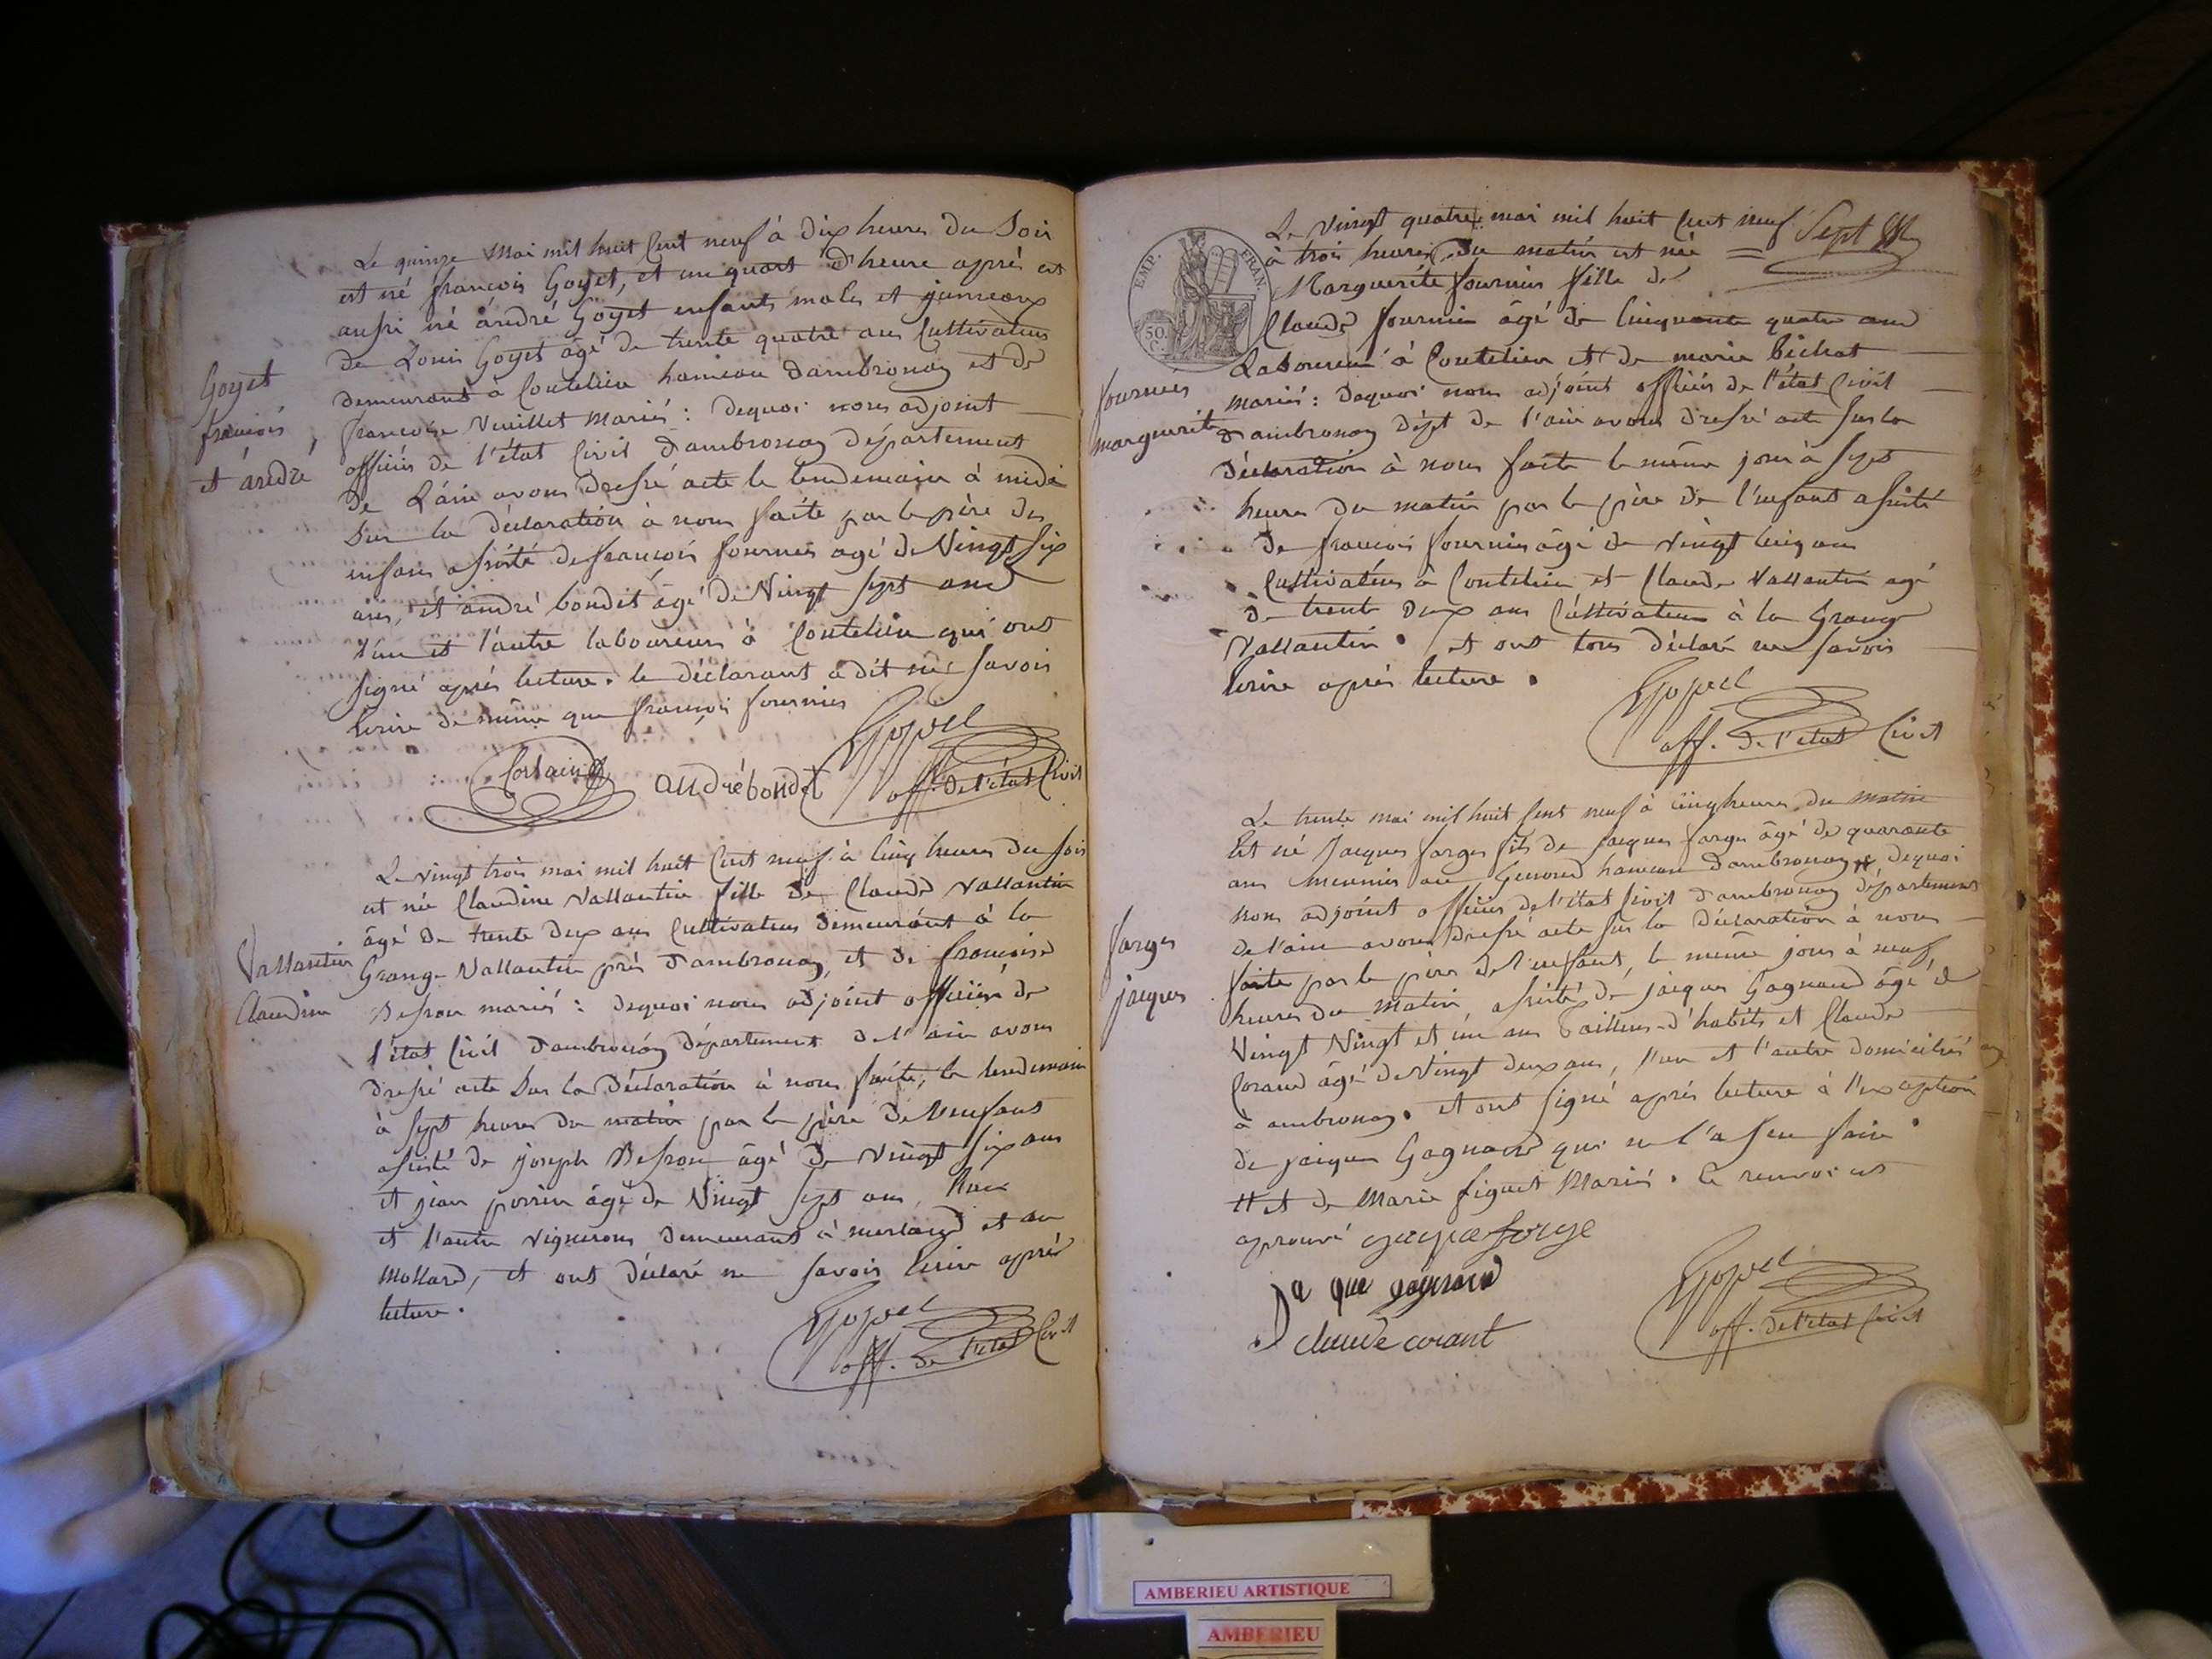 Le quinze mai mil huit Cent neuf à dix heures du Soir
est né françois Goyet, et un quart d'heure après est
aussi né andré Goyet enfants males et jumeaux
de Louis Goyet âgé de trente quatre ans Cultivateur
Goyet
françois,
et andré
demeurant à Coutelieu hameau dambronay et de
françoise Vuillet mariés : dequoi nous adjoint
officier de l'état Civil dambronay département
de Lain avons dressé acte le lendemain à midi
Sur la déclaration à nous faite par le père des
enfans assisté de françois fournier agé de Vingt six
ans, et andré bondet âgé de Vingt sept ans
l'un et l'autre laboureurs à Coutelieu qui ont
signé après lecture. le déclarant a dit ne savoir
Ecrire de même que françois fournier
andré bondet
Goppel
off. de l'état Civil
Le vingt trois mai mil huit Cent neuf à Cinq heures du soir
est née Claudine Vallantin fille de Claude Vallantin
âgé de trente deux ans Cultivateur demeurant à la
Vallantin
Claudine
Grange Vallantin près d'ambronay, et de françoise
Besson mariés : dequoi nous adjoint officier de
l'état Civil d'ambronay département de l'ain avons
dressé acte Sur la Déclaration à nous faite, le lendemain
à sept heures du matin par le père de l'enfant
assisté de joseph Besson âgé de vingt six ans
et jean perrin âgé de Vingt sept ans, l'un
et l'autre vignerons demeurant à merland et au
Mollard, et ont déclaré ne savoir Ecrire après
lecture.
Goppel
off. de l'état Civil
Le vingt quatre mai mil huit Cent neuf
Sept
à trois heures du matin est née =
EMP. FRAN.
50 C.
Marguerite fournier fille de
Claude fournier âgé de Cinquante quatre ans
Laboureur à Coutelieu et de marie bichat
fournier
marguerite
mariés : dequoi nous adjoint officier de l'état Civil
d'ambronay dépt de l'ain avons dressé acte sur la
Déclaration à nous faite le même jour à sept
heures du matin par le père de l'enfant assisté
de françois fournier âgé de vingt Cinq ans
Cultivateur à Coutelieu et Claude Vallantin agé
de trente deux ans Cultivateur à la Grange
Vallantin. et ont tous déclaré ne savoir
Ecrire après lecture.
Goppel
off. de l'état Civil
Le trente mai mil huit Cent neuf à Cinq heures du matin
Est né Jacques farges fils de jacques farges âgé de quarante
ans meunier au hameau d'ambronay # dequoi
nous adjoint officier de l'état Civil d'ambronay département
de l'ain avons dressé acte sur la déclaration à nous
farges
jacques
faite par le père de l'enfant, le même jour à neuf
heures du matin, assisté de jacques Gagnard âgé de
Vingt Vingt et un ans tailleur d'habits et Claude
Corand âgé de Vingt deux ans, l'un et l'autre domiciliés
à ambronay. et ont signé après lecture à l'exception
de jacques Gagnard qui ne l'a seu faire.
# et de Marie figuet Mariés. Ce renvoi est
aprouvé
claude corant
Goppel
off. de l'état Civil
AMBERIEU ARTISTIQUE
AMBERIEU